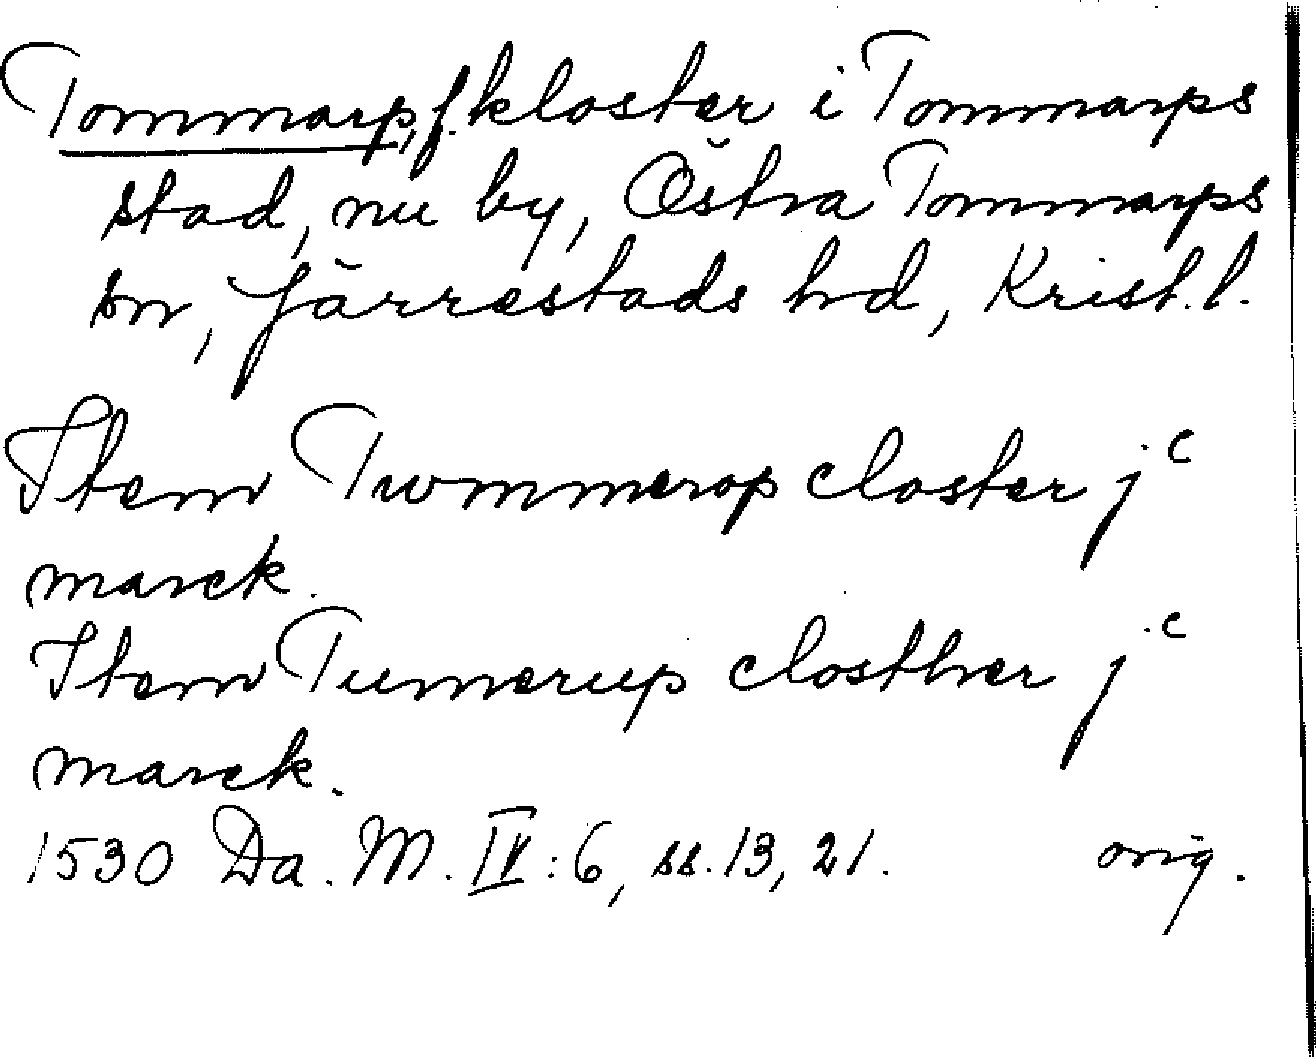 Tommarp, f. kloster i Tommarps
stad, nu by, Östra Tommarps
sn, Järrestads hd, Krist. l.
Item Twmmerop closter jc
marck.
Item Tumerup closther jc
marck.
1530 Da. M. IV: 6, ss. 13, 21. orig.